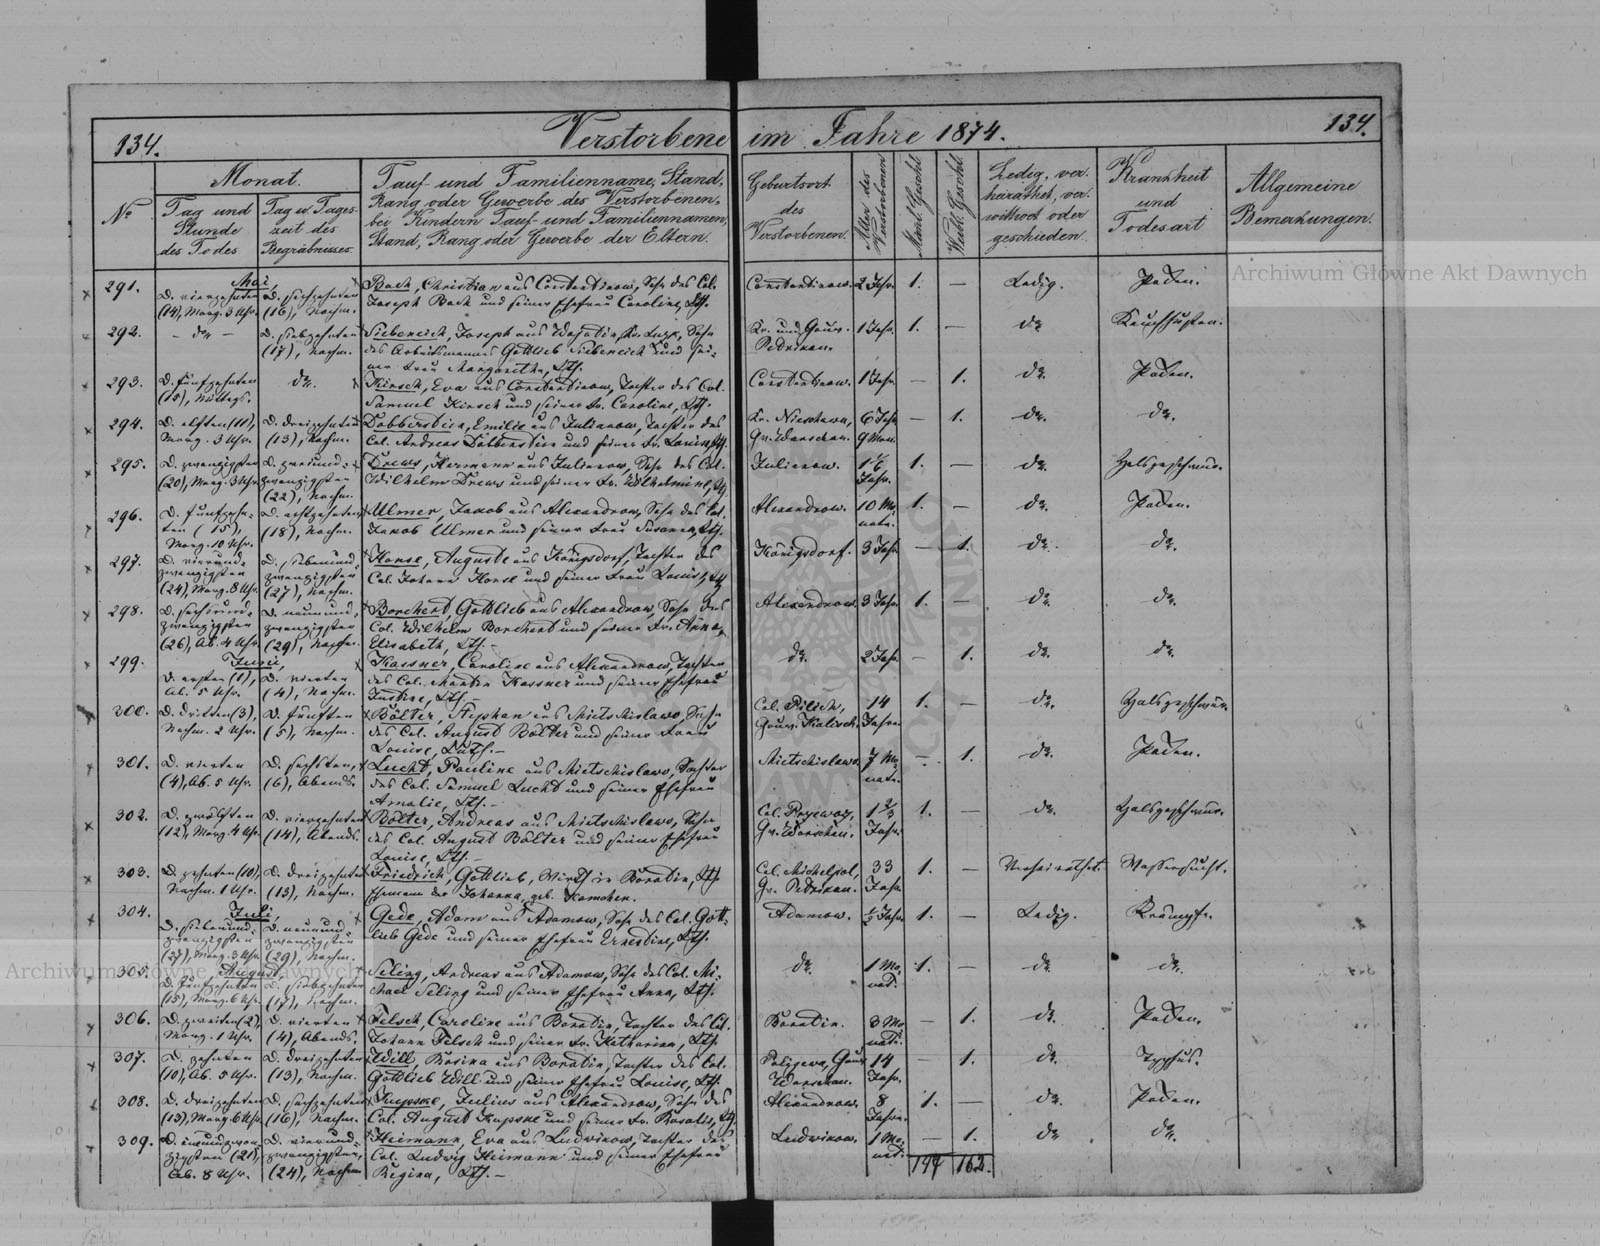 134.
Verstorbene im Jahre 1874.
134.
No
Monat.
Tag und Stunde des Todes
Tag u. Tages-zeit des Begräbnisses.
Tauf- und Familienname, Stand,
Rang oder Gewerbe des Verstorbenen,
bei Kindern Tauf- und Familiennamen,
Stand, Rang oder Gewerbe der Eltern.
Geburtsort des Verstorbenen.
Alter des Verstorbenen
Männl. Geschl.
Weibl. Geschl.
Ledig, ver-heirathet, ver-wittwet oder geschieden.
Krankheit und Todesart
Allgemeine Bemerkungen.
Archiwum Główne Akt Dawnych
Mai,
291.
D. vierzehnten (14), Morg. 3 Uhr.
D. sechzehnten (16), Nachm.
Bach, Christian aus Constantinow, Sohn des Col.
Joseph Bach und seiner Ehefrau Caroline, Lth.
Constantinow. 2 Jahr. 1. — Ledig. Pocken.
292.
— do —
D. siebzehnten (17), Nachm.
Siebeneich, Joseph aus
des Arbeitsmannes Gottlieb Siebeneich und sei-
ner Frau Margarethe, Lth.
Kr. und Gouv. Petrikau. 1 Jahr. 1. — do Keuchhusten.
293.
D. fünfzehnten (15), Mittags.
do.
Kirsch, Eva aus Constantinow, Tochter des Col.
Samuel Kirsch und seiner Fr. Caroline, Lth.
Constantinow. 1 Jahr. — 1. do Pocken.
294.
D. elften (11), Morg. 3 Uhr.
D. dreizehnten (13), Nachm.
Dobberstein, Emilie aus Julianow, Tochter des
Col. Andreas Dobberstein und seiner Fr. Louise, Lth.
Kr. Nieschawa, Gv. Warschau. 6 Jahr 9 Mon. — 1. do. do.
295.
D. zwanzigsten (20), Morg. 3 Uhr
D. zweiund-zwanzigsten (22), Nachm.
Drews, Hermann aus Julianow, Sohn des Col.
Wilhelm Drews und seiner Fr. Wilhelmine, Lth.
Julianow. 1 1/6 Jahr. 1. — do. Halsgeschwür.
296.
D. fünfzehn-ten (15), Morg. 10 Uhr.
D. achtzehnten (18), Nachm.
Ulmer, Jakob aus Alexandrow, Sohn des Col.
Jakob Ulmer und seiner Frau Susanna, Lth.
Alexandrow. 10 Mo-nate. 1. — do. Pocken.
297.
D. vierund-zwanzigsten (24), Morg. 8 Uhr.
D. siebenund-zwanzigsten (27), Nachm.
Honse, Auguste aus Königsdorf, Tochter des
Col. Johann Honse und seiner Frau Louise, Lth.
Königsdorf. 3 Jahr — 1. do. do.
298.
D. sechsund-zwanzigsten (26), Ab. 4 Uhr.
D. neunund-zwanzigsten (29), Nachm.
Borchert, Gottlieb aus Alexandrow, Sohn des
Col. Wilhelm Borchert und seiner Fr. Anna
Elisabeth, Lth. —
Alexandrow. 3 Jahr. 1. — do. do.
Juni,
299.
D. ersten (1), Ab. 5 Uhr.
D. vierten (4), Nachm.
Kassner, Caroline aus Alexandrow, Tochter
des Col. Martin Kassner und seiner Ehefrau
Justine, Lth. —
do. 2 Jahr — 1. do. do.
300.
D. dritten (3), Nachm. 2 Uhr.
D. fünften (5), Nachm.
Bölter, Stephan aus Mietschislawo, Sohn
des Col. August Bölter und seiner Frau
Louise, Luth. —
Col. Pilich, Gouv. Kalisch. 14 Jahre. 1. — do. Halsgeschwür.
301.
D. vierten (4), Ab. 5 Uhr.
D. sechsten, (6), Abends.
Lucht, Pauline aus Mietschislawo, Tochter
des Col. Samuel Lucht und seiner Ehefrau
Amalie, Lth. —
Mietschislawo. 7 Mo-nate. — 1. do. Pocken.
302.
D. zwölften (12), Morg. 4 Uhr.
D. vierzehnten (14), Abends.
Bölter, Andreas aus Mietschislawo, Sohn
des Col. August Bölter und seiner Ehefrau
Louise, Lth. —
Col. Gv. Warschau. 1 2/3 Jahr. 1. — do. Halsgeschwür.
303.
D. zehnten (10), Nachm. 1 Uhr.
D. dreizehnten (13), Nachm.
Friedrich, Gottlieb, Wirth in Borodin, Lth.
Ehemann der Johanna, geb.
Col. Michelpol, Gv. Petrikau. 33 Jahr. 1. — Verheirathet. Wassersucht.
Juli,
304.
D. siebenund-zwanzigsten (27), Morg. 3 Uhr
D. neunund-zwanzigsten (29), Nachm.
Gede, Adam aus Adamow, Sohn des Col. Gott-
lieb Gede und seiner Ehefrau Ernestine, Lth.
Adamow. 1/2 Jahr. 1. — Ledig. Krämpfe.
Archiwum Główne Akt Dawnych
August,
305.
D. fünfzehnten (15), Morg. 6 Uhr.
D. siebzehnten (17), Nachm.
Seling, Andreas aus Adamow, Sohn des Col. Mi-
chael Seling und seiner Ehefrau Anna, Lth.
do. 1 Mo-nat. 1. — do. do.
306.
D. zweiten (2), Morg. 1 Uhr.
D. vierten (4), Abends.
Felsch, Caroline aus Borodin, Tochter des Col.
Johann Felsch und seiner Fr. Katharina, Lth.
Borodin. 3 Mo-nate. — 1. do. Pocken.
307.
D. zehnten (10), Ab. 5 Uhr.
D. dreizehnten (13), Nachm.
Will, Rosina aus Borodin, Tochter des Col.
Gottlieb Will und seiner Ehefrau Louise, Lth.
Gouv. Warschau. 14 Jahr. — 1. do. Typhus.
308.
D. dreizehnten (13), Morg. 6 Uhr.
D. sechzehnten (16), Nachm.
Kupske, Julius aus Alexandrow, Sohn des
Col. August Kupske und seiner Fr. Rosalie, Lth.
Alexandrow. 8 Jahre. 1. — do. Pocken.
309.
D. einundzwan-zigsten (21), Ab. 8 Uhr.
D. vierund-zwanzigsten, (24), Nachm
Heimann, Eva aus Ludwikow, Tochter des
Col. Ludwig Heimann und seiner Ehefrau
Regina, Lth. —
Ludwikow. 1 Mo-nat. — 1. do do.
162.